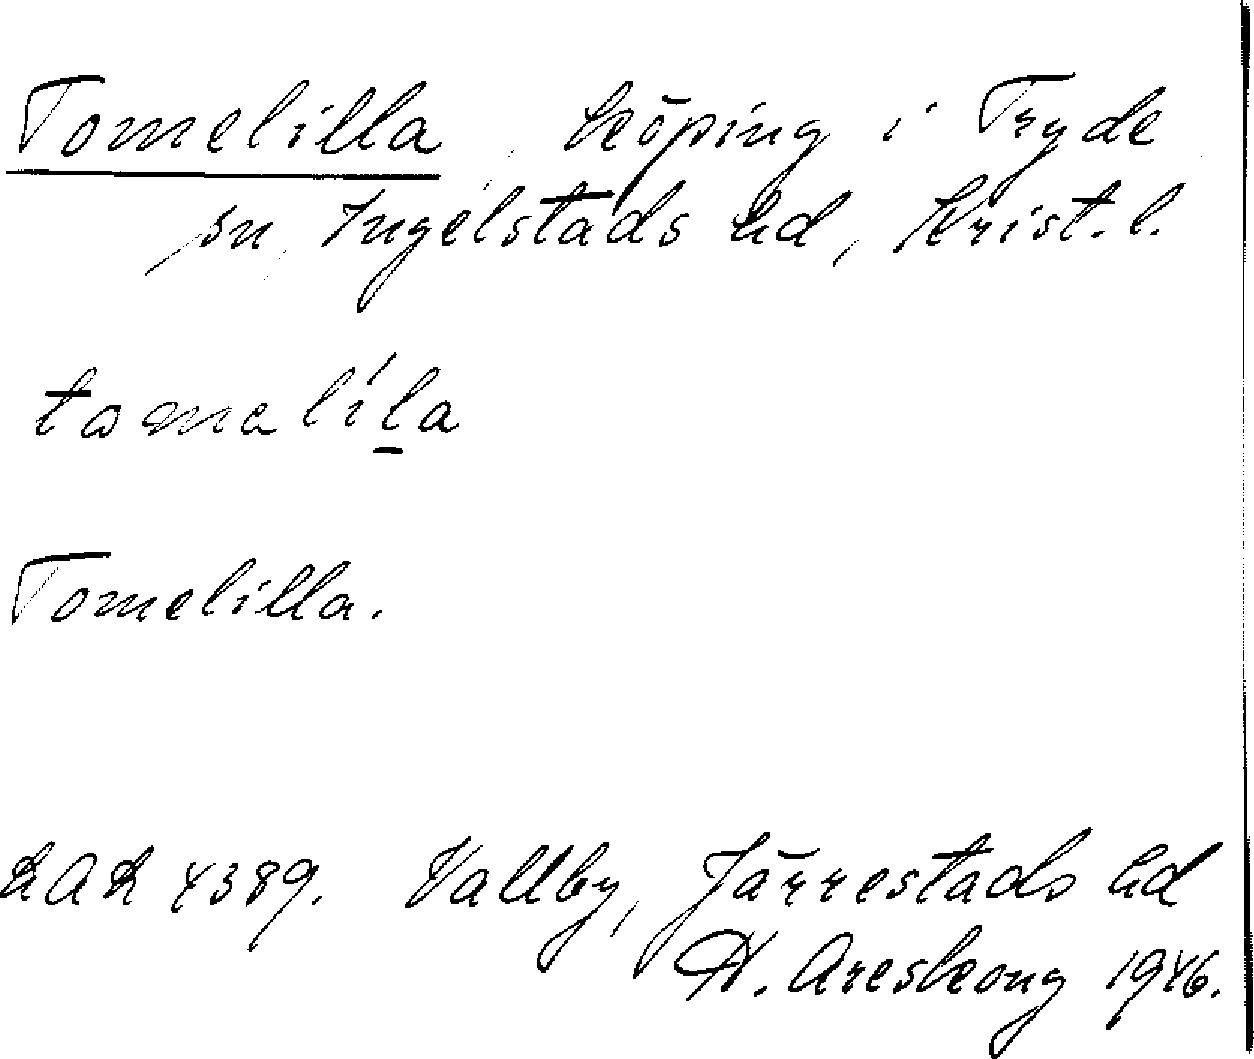 Tomelilla, köping i Tryde
sn, Ingelstads hd, Krist. l.
tomalíl̲a
Tomelilla.
LAL 4389. Vallby, Järrestads hd
H. Areskoug 1946.